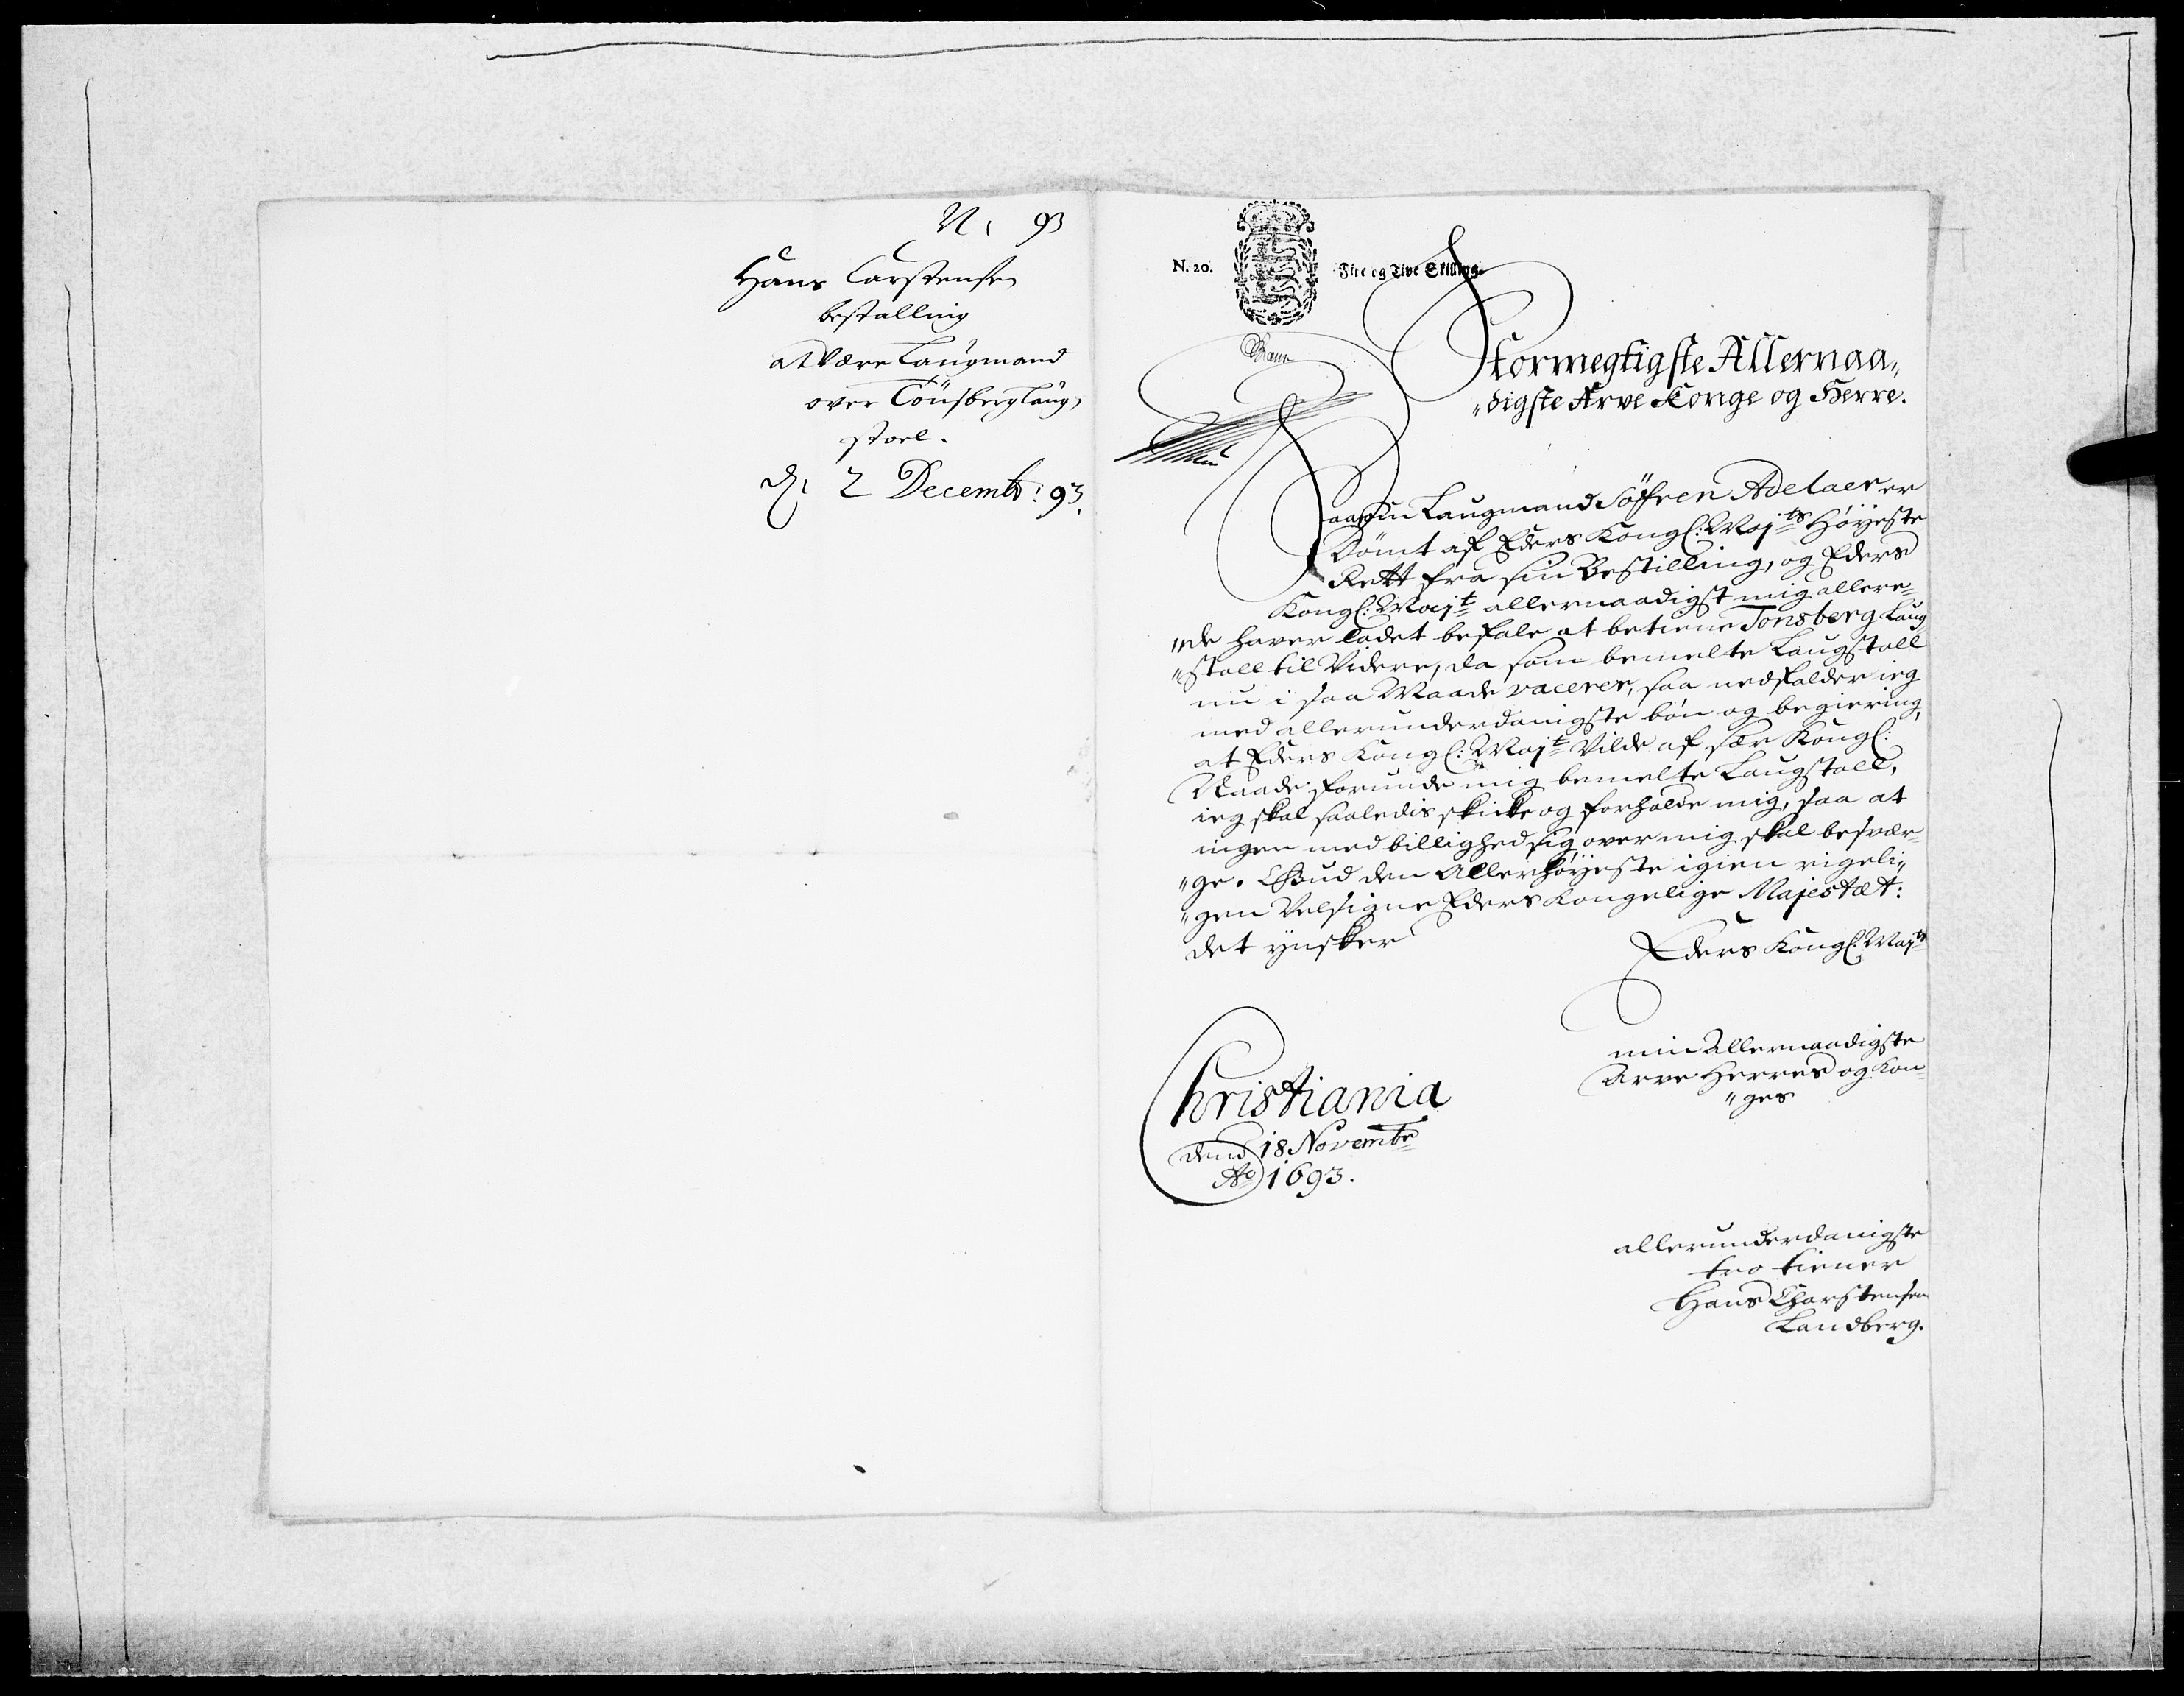 N: 93
Hans Carstensen
bestalling
at være Laugmand
over Tönsberg Laug,
stoel.
D: 2 Decembr: 93.
N. 20. Fire og Tive Skilling.
Stormegtigste Allernaa„
„digste Arve Konge og Herre.
Saasom Laugmand Söfren Adelaer er
Dömt af Eders Kongl: Majts Höyeste
Rett fra sin Bestilling, og Eders
Kongl: Majt allernaadigst mig allere„
„de haver ladet befale at betiene Tonsberg Laug
„stoll til Videre, da som bemelte Laugstoll
nu i saa Maade vacerer, saa nedfalder ieg
med allerunderdanigste bön og begiering,
at Eders Kongl: Majt Vilde af sær Kongl:
Naade forunde mig bemelte Laugstoll,
ieg skal saaledis skicke og forholde mig, saa at
ingen med billighed sig over mig skal besvær„
„ge. Gud den Allerhöyeste igien rigeli„
„gen Velsigne Eders Kongelige Majestæt:
det ynsker
Eders Kongl: Majts
min Allernaadigste
Arve Herres og Kon„
„ges
Christiania
dend 18 Novembr
Ao 1693.
allerunderdanigste
tro tiener
Hans Charstensen
Landberg.